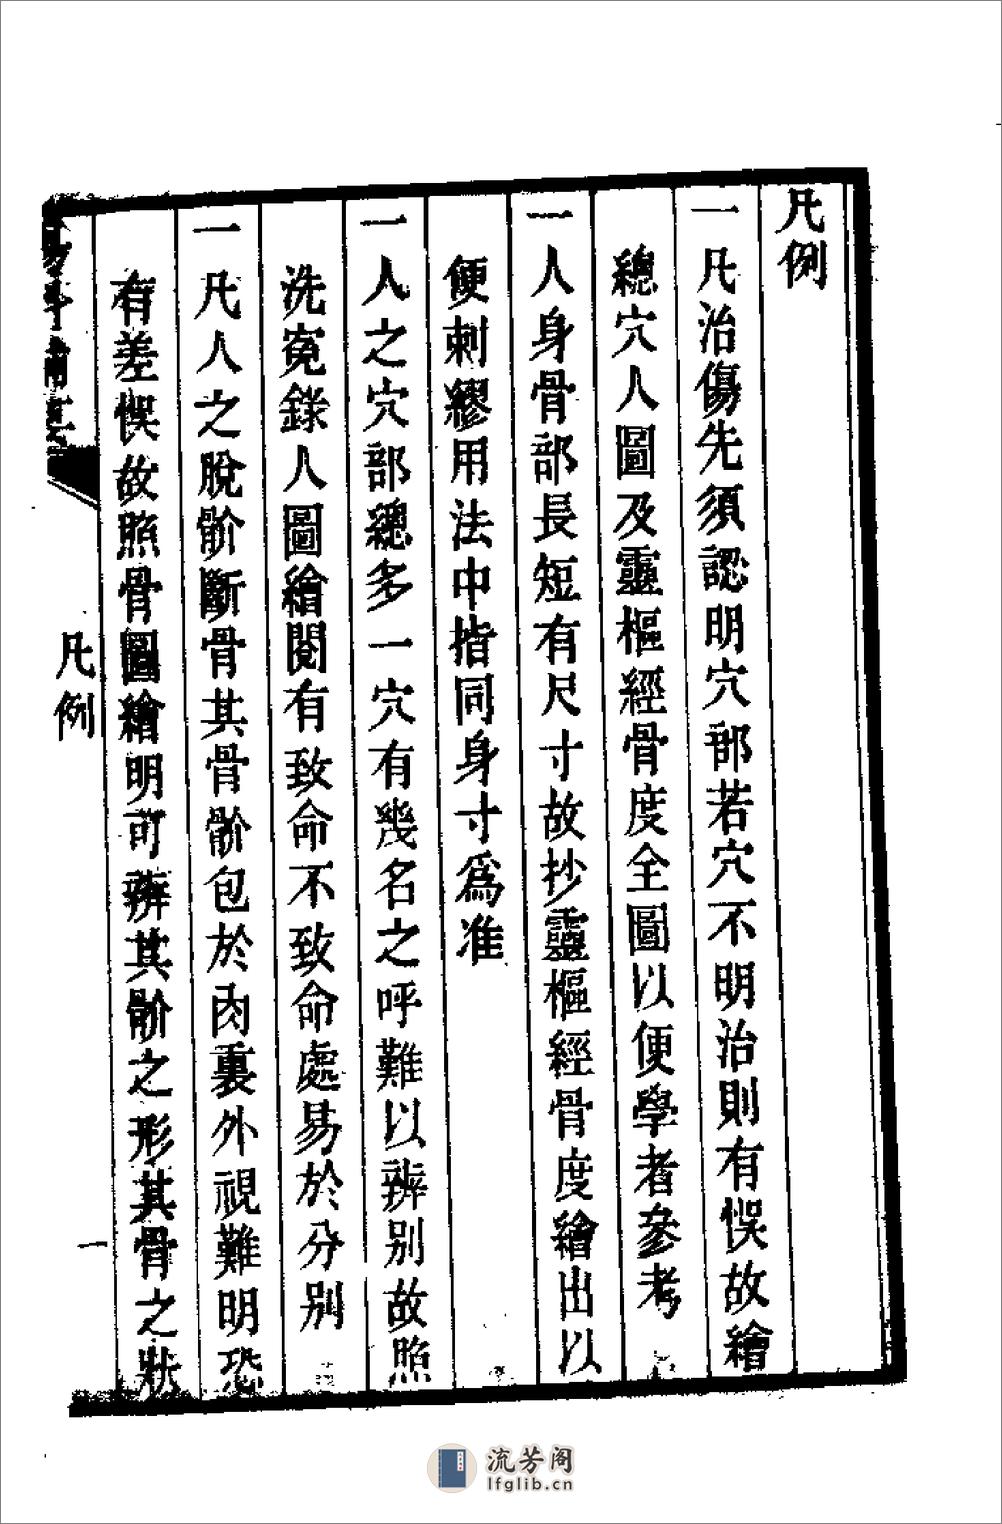 凡例
一凡治傷先須認明穴部若穴不明治則有悞故繪
總穴人圖及靈樞經骨度全圖以便學者參考
一人身骨部長短有尺寸故抄靈樞經骨度繪出以
便刺繆用法中指同身寸爲准
一人之穴部總多一穴有幾名之呼難以辨别故照
洗寃錄人圖繪閱有致命不致命處易於分别
一凡人之脫骱斷骨其骨骱包於肉裏外視難明恐
有差悞故照骨圖繪明可辨其骱之形其骨之狀
凡例
一
流芳阁
lfglib.cn